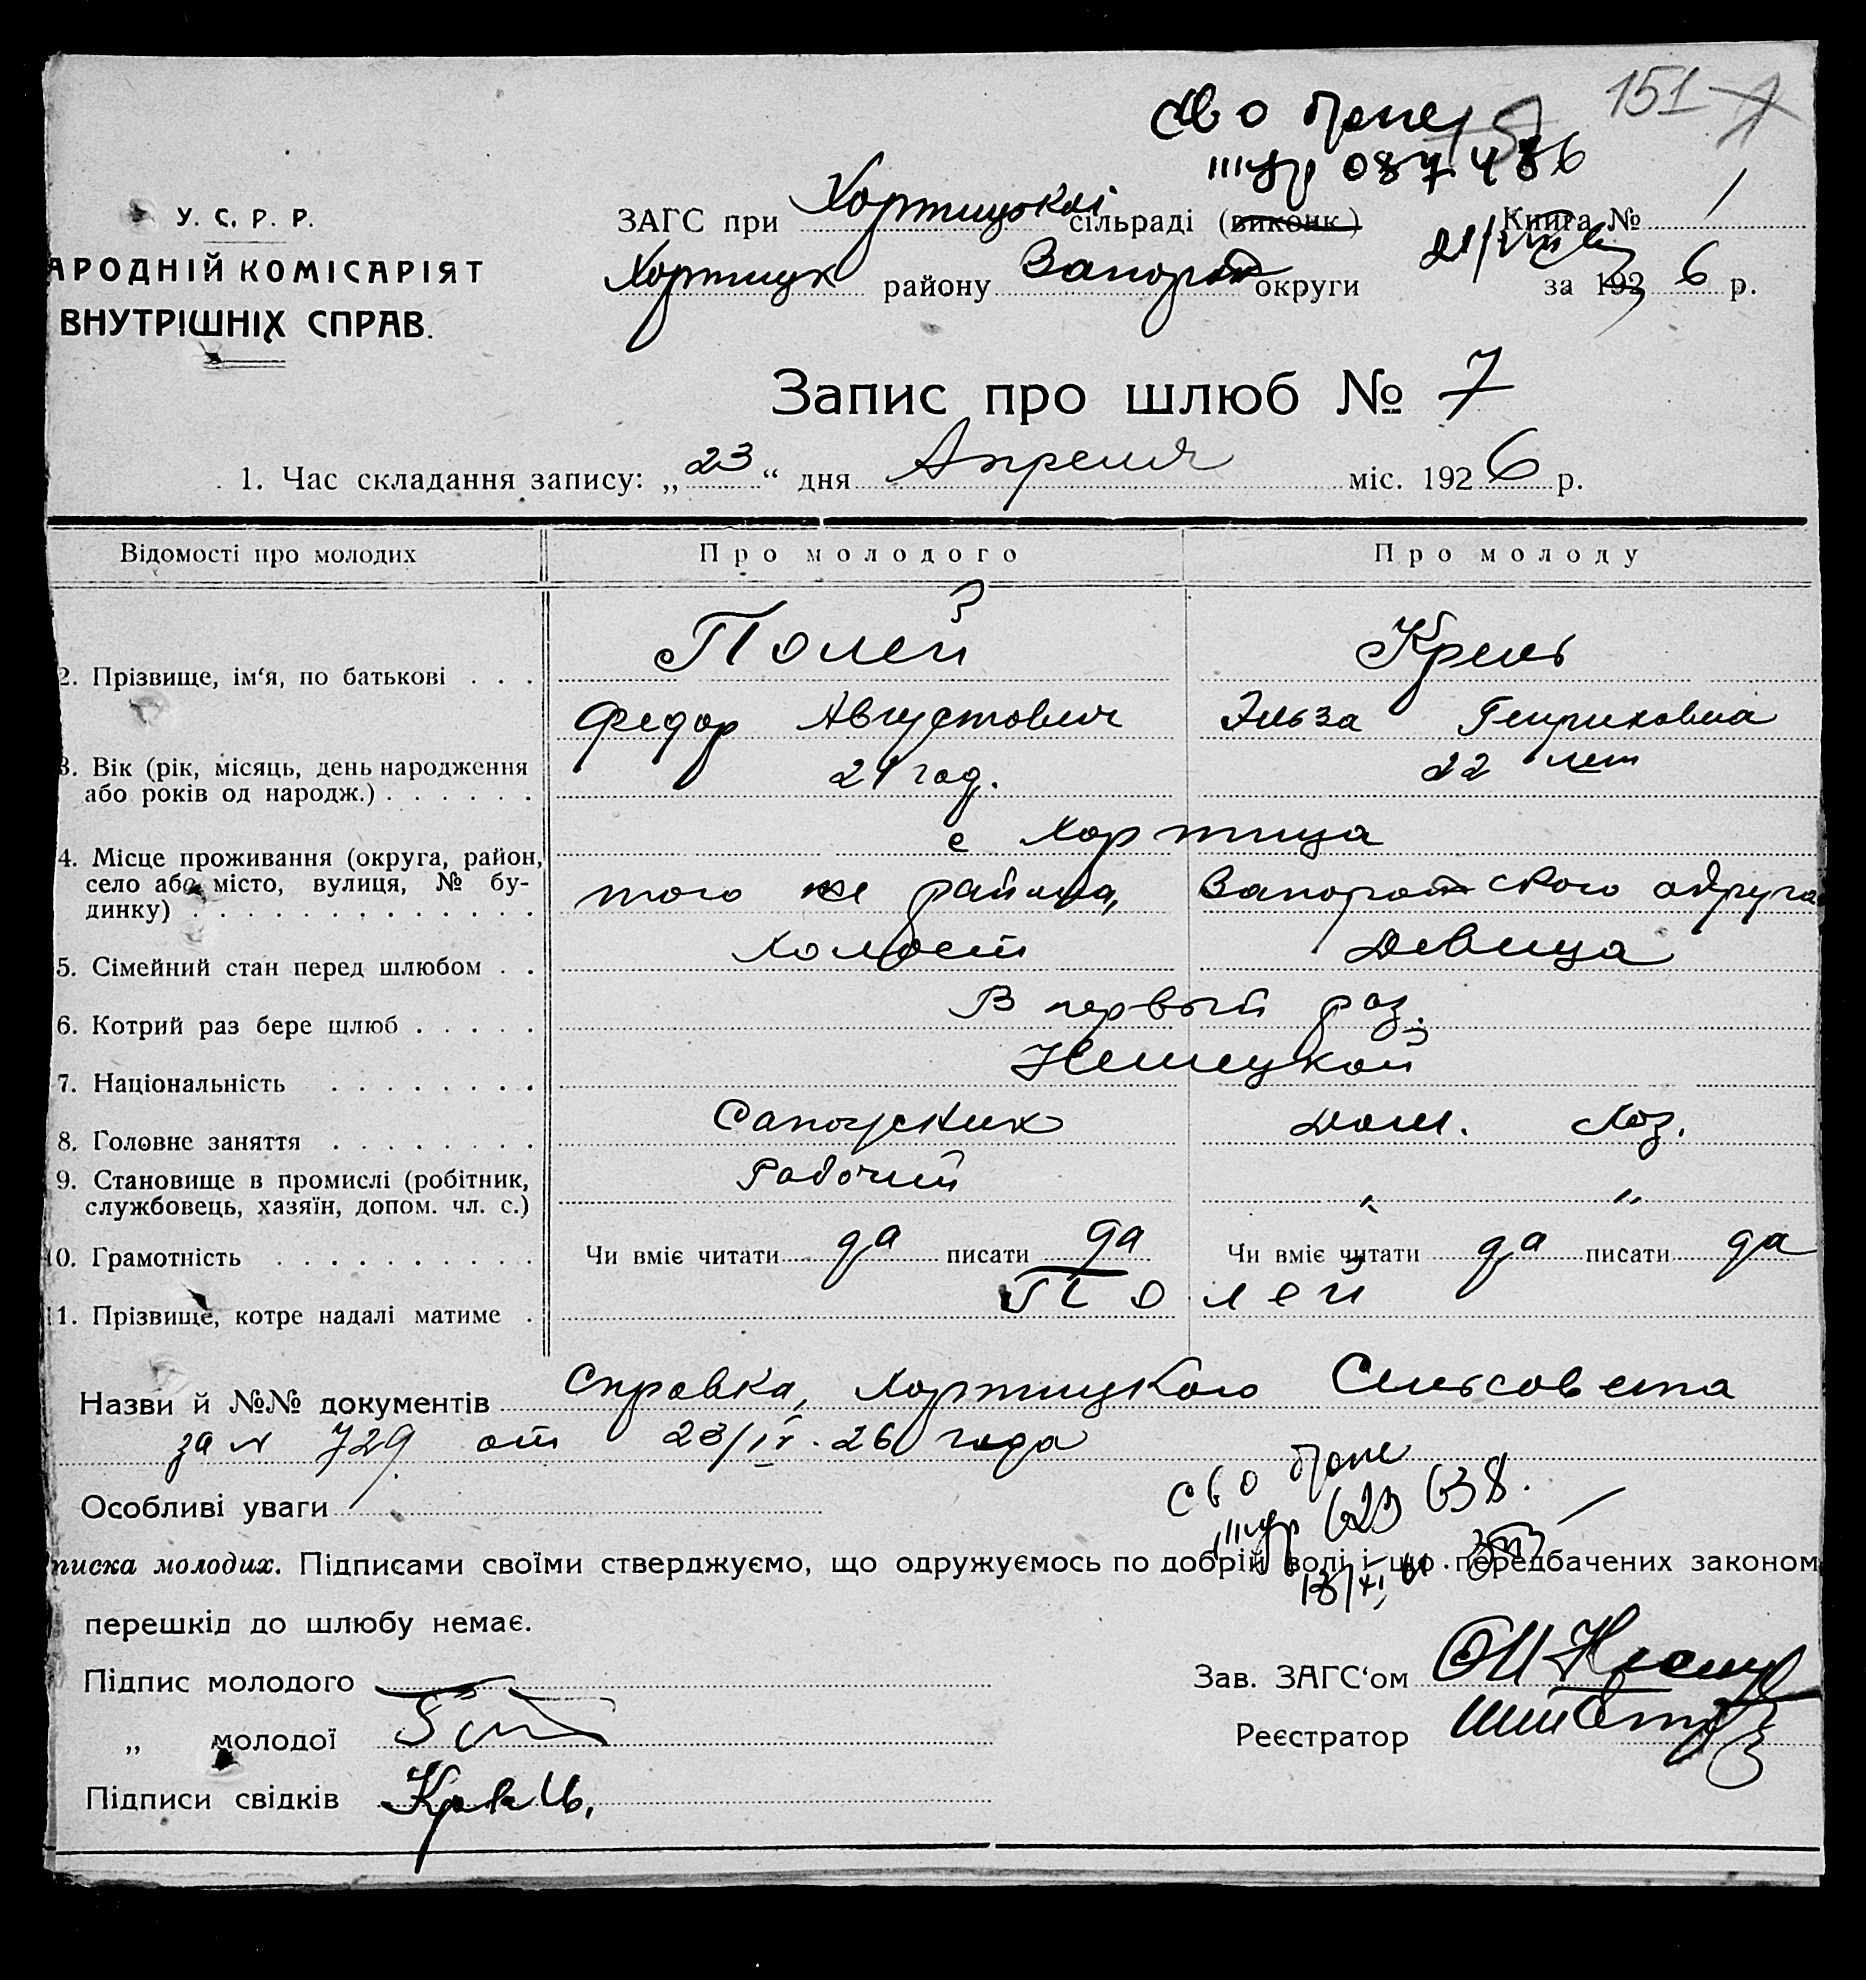 151
св о браке
087486
У. С. Р. Р.
ЗАГС при Хортицькій сільраді (виконк.) Книга № 1
АРОДНІЙ КОМІСАРІЯТ
Хортицк району Запорож округи за 192 6 р.
ВНУТРІШНІХ СПРАВ.
Запис про шлюб № 7
1. Час складання запису: „23“ дня Апреля міс. 1926 р.
Відомості про молодих Про молодого Про молоду
2. Прізвище, ім‘я, по батькові . . . Полей Крель
Федор Августович Эльза Генриховна
3. Вік (рік, місяць, день народження 24 год. 22 лет
або років од народж.) . . . . . .
4. Місце проживання (округа, район, с Хортица
село або місто, вулиця, № бу- того же района, Запорожского округа
динку) . . . . . . . . . . . . . .
5. Сімейний стан перед шлюбом . . Холост Девица
6. Котрий раз бере шлюб . . . . . В первый раз.
7. Національність . . . . . . . . Немецкой
8. Головне заняття . . . . . . . . Сапожник Дом. Хоз.
9. Становище в промислі (робітник, Рабочий " "
службовець, хазяїн, допом. чл. с.)
10. Грамотність . . . . . . . . . . Чи вміє читати да писати да Чи вміє читати да писати да
11. Прізвище, котре надалі матиме . Полей
Назви й №№ документів Справка, Хортицкого Сельсовета
за № 729 от 23/IV. 26 года
Особливі уваги
св о браке
623 638.
писка молодих. Підписами своїми стверджуємо, що одружуємось по добрій волі і що передбачених законом
перешкід до шлюбу немає.
Підпис молодого Зав. ЗАГС‘ом
„ молодої Реєстратор
Підписи свідків